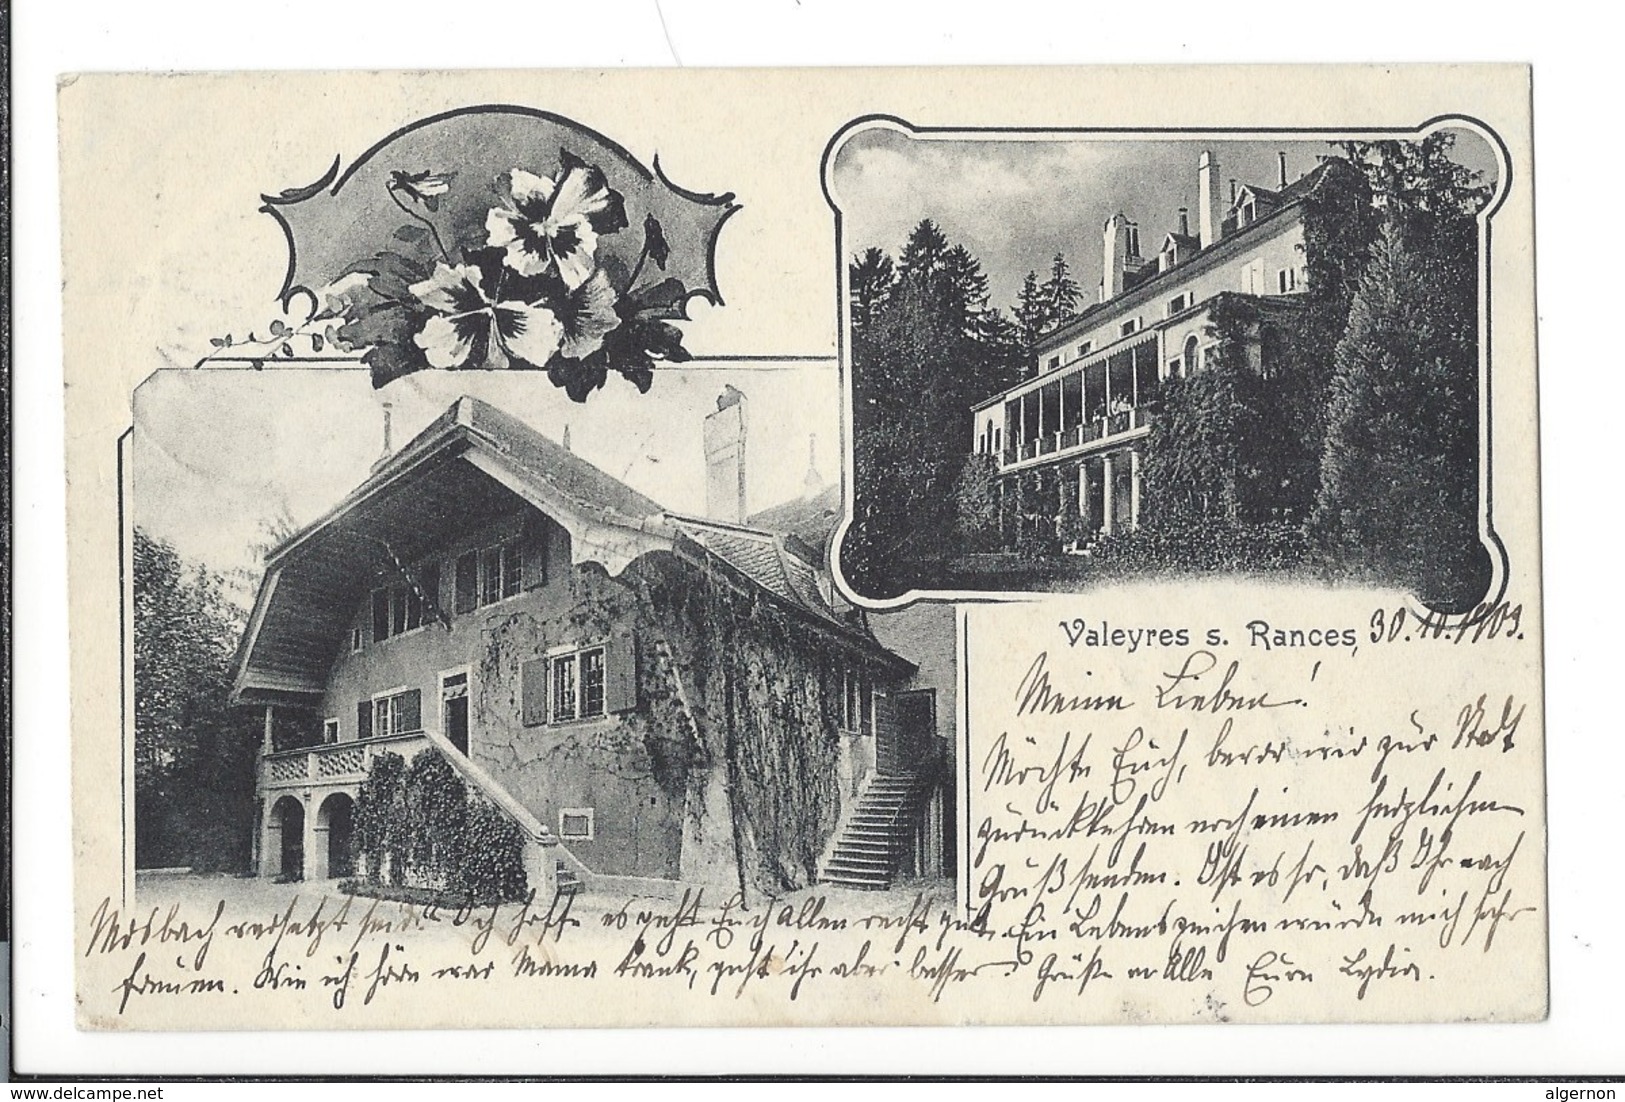 Valeyres s. Rances, 30.10.1903.
Meine Lieben!
Möchte Euch, bevor wir zur Stadt
zurückkehren noch einen herzlichen
Gruß senden. Ist es so, daß Ihr nach
Mosbach versetzt seid? Ich hoffe es geht Euch Allen recht gut. Ein Lebenszeichen würde mich sehr
freuen. Wie ich höre war Mama krank, geht ihr aber besser? Grüße an Alle Eure Lydia.
delcampe.net
algernon